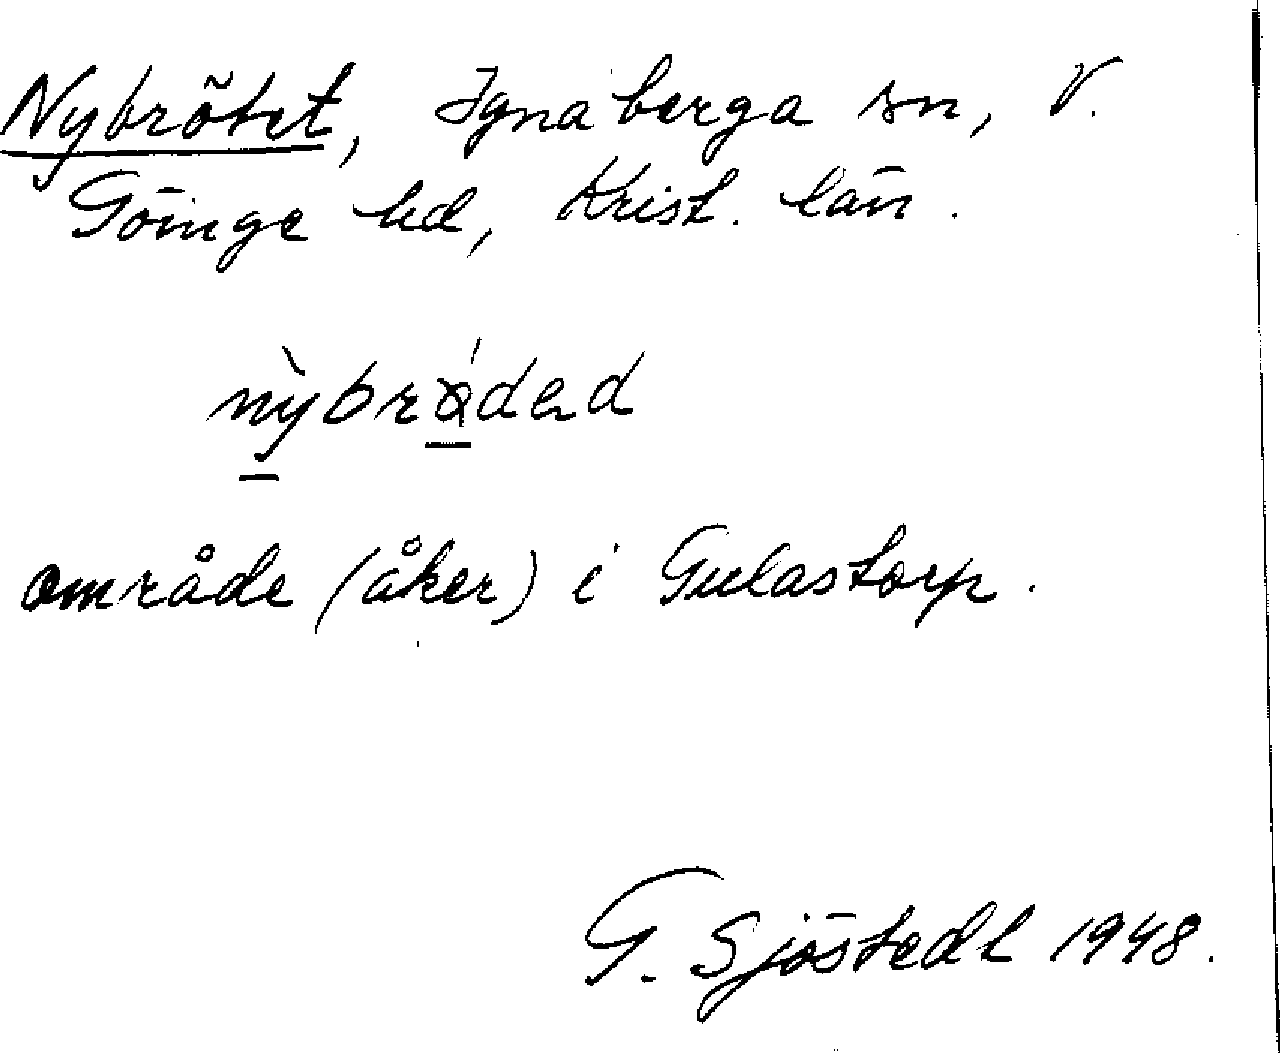 Nybrötet, Ignaberga sn, V.
Göinge hd, Krist. län.
nỳbrǿdəd
område (åker) i Gulastorp.
G. Sjöstedt 1948.